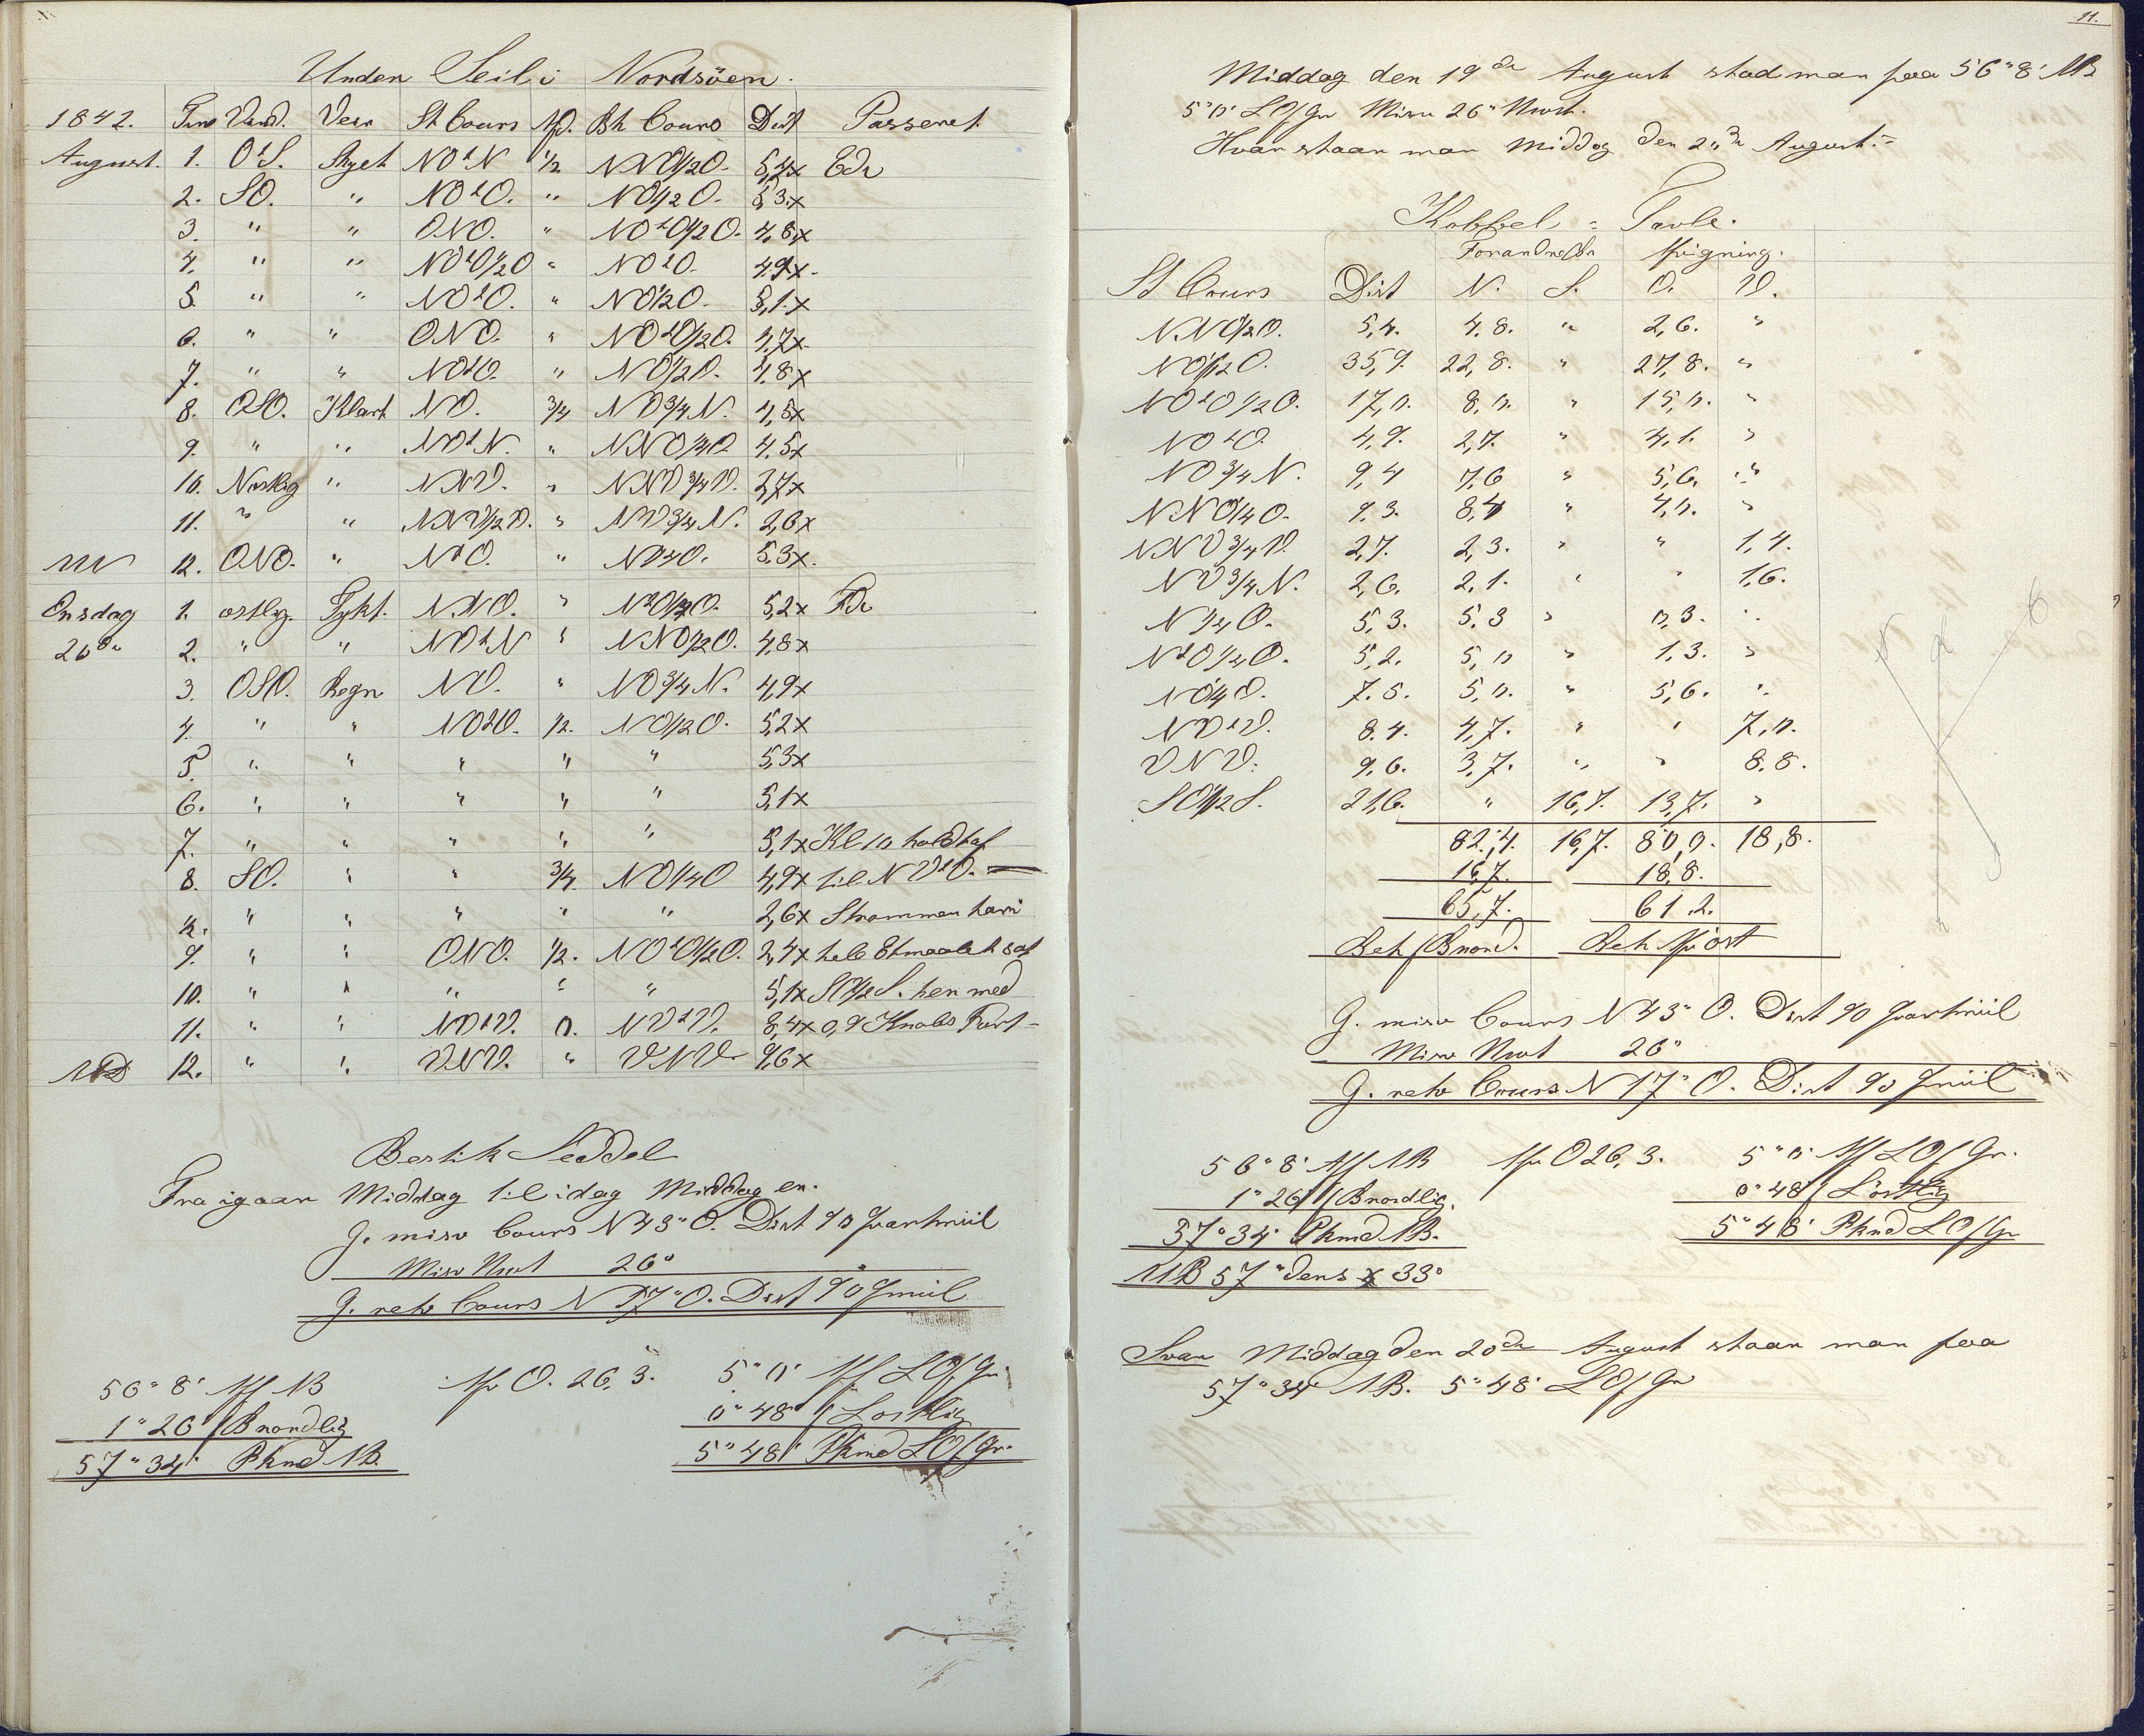 Under Seil i Nordsöen.
1842. Tim Vind. Veir St Cours Afd. Bh Cours Dist Passeret.
August. 1. OtS. Skyet NOtN 1/2 NNO1/2O. 5,4x Edr
2. SO. " NOtO. " NO1/2O. 5,3x
3. " " ONO. " NOtO1/2O. 4,8x
4. " " NOtO1/2O " NOtO. 4,9x
5. " " NOtO. " NO1/2O. 5,1x
6. " " ONO. " NOtO1/2O. 4,7x
7. " " NOtO. " NO1/2O. 4,8x
8. OSO. Klart NO. 3/4 NO3/4N. 4,5x
9. " " NOtN. " NNO1/4O 4,5x
10. Nostlig " NNV. " NNV3/4V. 2,7x
11. " " NNV1/2V. " NV3/4N. 2,6x
12. ONO. " NtO. " N1/4O. 5,3x
Onsdag 1. ostlig. Tykt. NNO. " NtO1/4O. 5,2x Fdr
20de 2. " " NOtN " NNO1/4O. 4,8x
3. OSO. Regn NO. " NO3/4N. 4,9x
4. " " NOtO. 1/2. NO1/2O. 5,2x
5. " " " " " 5,3x
6. " " " " " 5,1x
7. " " " " " 5,1x Kl 10 holdt af
8. SO. " " 3/4. NO1/4O 4,9x til NVtV.
1/2. " " " " " 2,6x Strømmen havr
9. " " ONO. 1/2. NOtO1/2O. 2,4x hele Etmaalet sat
10. " " " " " 5,1x SO1/2S. hen med
11. " " NVtV. 0. NVtV. 8,4x 0,9 Knobs Fart
MD 12. " " VNV. " VNV. 9,6x
Bestik Seddel
Fra igaar Middag til idag Middag er.
G. misv Cours N 43° O. Dist 90 Kvartmiil
Misv Nvst 26°
G. retv Cours N 17° O. Dist 90 Qmiil
56° 8' Af NB Afv O. 26,3. 5° 0' Af LO f Gr.
1° 26' f B nordlig 0° 48' f L ostlig
57° 34' Pkmd NB. 5° 48' Pkmd LO f Gr.
11.
Middag den 19de August stod man paa 56° 8' NB
5° 0' LO f Gr Misv 26° Nvst.
Hvor staar man Middag den 20de August.=
Kobbel = Tavle.
Forandret Br Afvigning.
St Cours Dist N. S. O. V.
NNO1/2O. 5,4. 4,8. " 2,6. "
NO1/2O. 35,9. 22,8. " 27,8. "
NOtO1/2O. 17,0. 8,0. " 15,0. "
NOtO. 4,9. 2,7. " 4,1. "
NO3/4N. 9,4 7,6 " 5,6. "
NNO1/4O. 9,3. 8,4 " 4,0. "
NNV3/4V. 2,7. 2,3. " " 1,4.
NV3/4N. 2,6. 2,1. " " 1,6.
N1/4O. 5,3. 5,3 " 0,3. "
NtO1/4O. 5,2. 5,0 " 1,3. "
NO1/4O. 7,5. 5,0. " 5,6. "
NVtV. 8,4. 4,7. " " 7,0.
VNV. 9,6. 3,7. " " 8,8.
SO1/2S. 21,6. " 16,7. 13,7. "
82,4. 16,7. 80,0. 18,8.
16,7. 18,8.
65,7. 61,2.
Beh f B nord. Beh Afv ost
G. misv Cours N 43° O. Dist 90 Kvartmiil
Misv Nvst 26°
G. retv Cours N 17° O. Dist 90 Qmiil
56° 8' Af NB Afv O 26,3. 5° 0' Af LO f Gr.
1° 26' f B nordlig. 0° 48' f L ostlig
57° 34' Pkmd NB. 5° 48' Pkmd LO f Gr
MB 57° dens x 33°
Svar Middag den 20de August staar man paa
57° 34' NB. 5° 48' LO f Gr